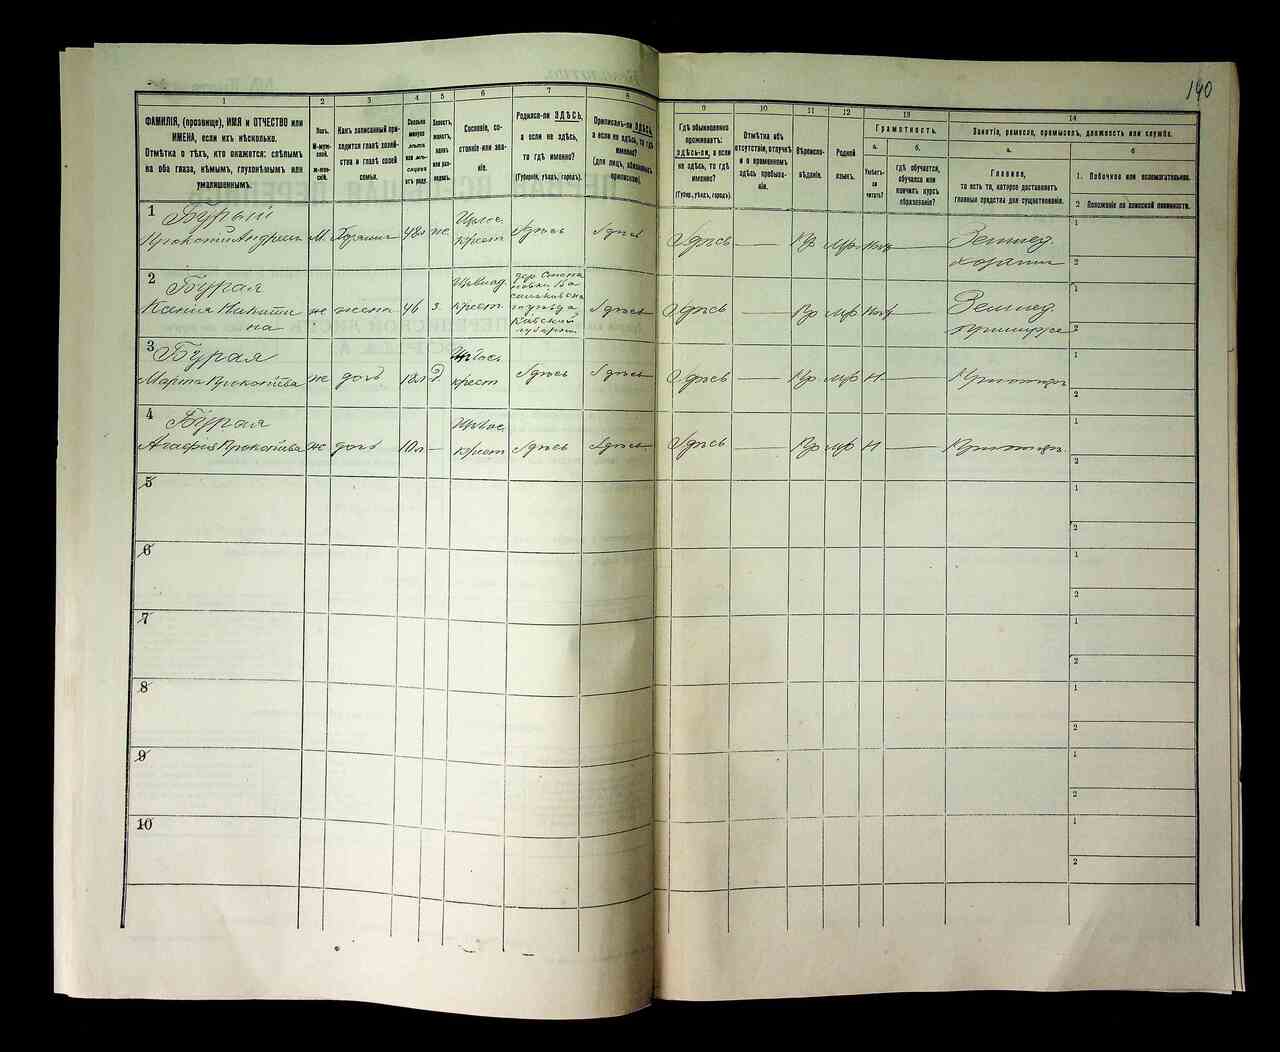 140
1
2
3
4
5
6
7
8
9
10
11
12
13
14
ФАМИЛІЯ, (прозвище), ИМЯ и ОТЧЕСТВО или
ИМЕНА, если ихъ нѣсколько.
Отмѣтка о тѣхъ, кто окажется: слѣпымъ
на оба глаза, нѣмымъ, глухонѣмымъ или
умалишеннымъ.
Полъ.
М-муж-
ской.
Ж-жен-
скій.
Какъ записанный при-
ходится главѣ хозяй-
ства и главѣ своей
семьи.
Сколько
минуло
лѣтъ
или мѣ-
сяцевъ
отъ роду.
Холостъ,
женатъ,
вдовъ
или раз-
веденъ.
Сословіе, со-
стояніе или зва-
ніе.
Родился-ли ЗДѢСЬ,
а если не здѣсь,
то гдѣ именно?
(Губернія, уѣздъ, городъ).
Приписанъ-ли ЗДѢСЬ,
а если не здѣсь, то гдѣ
именно?
(для лицъ, обязанныхъ
припиской).
Гдѣ обыкновенно
проживаетъ:
ЗДѢСЬ-ЛИ, а если
не здѣсь, то гдѣ
именно?
(Губер., уѣздъ, городъ).
Отмѣтка объ
отсутствіи, отлучкѣ
и о временномъ
здѣсь пребыва-
ніи.
Вѣроиспо-
вѣданіе.
Родной
языкъ.
Грамотность.
а.
Умѣетъ-
ли
читать?
б.
гдѣ обучается,
обучался или
кончилъ курсъ
образованія?
Занятіе, ремесло, промыселъ, должность или служба.
а.
Главное,
то есть то, которое доставляетъ
главныя средства для существованія.
б
1. Побочное или вспомогательное.
2 Положеніе по воинской повинности.
1 Бурый
Прокопій Андреевъ М. 48л же крест Здѣсь Здѣсь Здѣсь Пр Мр
Землед.
хозяинъ
1
2
2 Бурая
Ксенія Никити
на ж жена 46 з. крест. Здѣсь Здѣсь Пр Мр
Кіевской
губерніи
Землед.
1
2
3 Бурая
Марта Прокопіева ж дочь 18л д. крест Здѣсь Здѣсь Здѣсь Пр мр Н
1
2
4 Бурая
Агафія Прокопіева ж дочь 10л крест Здѣсь Здѣсь Здѣсь Пр мр Н
1
2
5
1
2
6
1
2
7
1
2
8
1
2
9
1
2
10
1
2